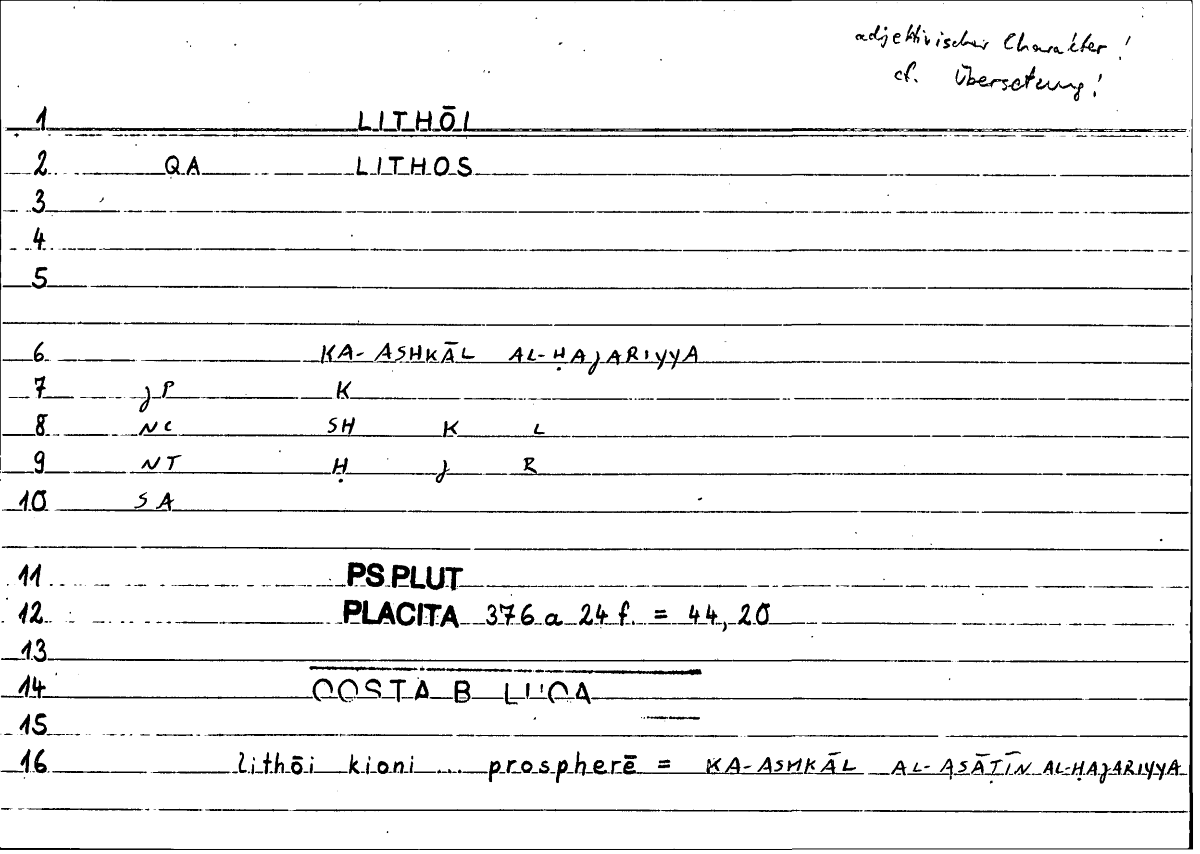 adjektivischer Charakter!
cf. Übersetzung!
1 LITHŌI
2 QA LITHOS
3
4
5
6 KA-ASHKĀL AL-ḤAJARIYYA
7 JP K
8 NC SH K L
9 NT Ḥ J R
10 SA
11 PS PLUT
12 PLACITA 376 a 24 f. = 44,20
13
14 QOSTA B LUQA
15
16 lithōi kioni ... prospherē = KA-ASHKĀL AL-ASĀṬĪN AL-ḤAJARIYYA